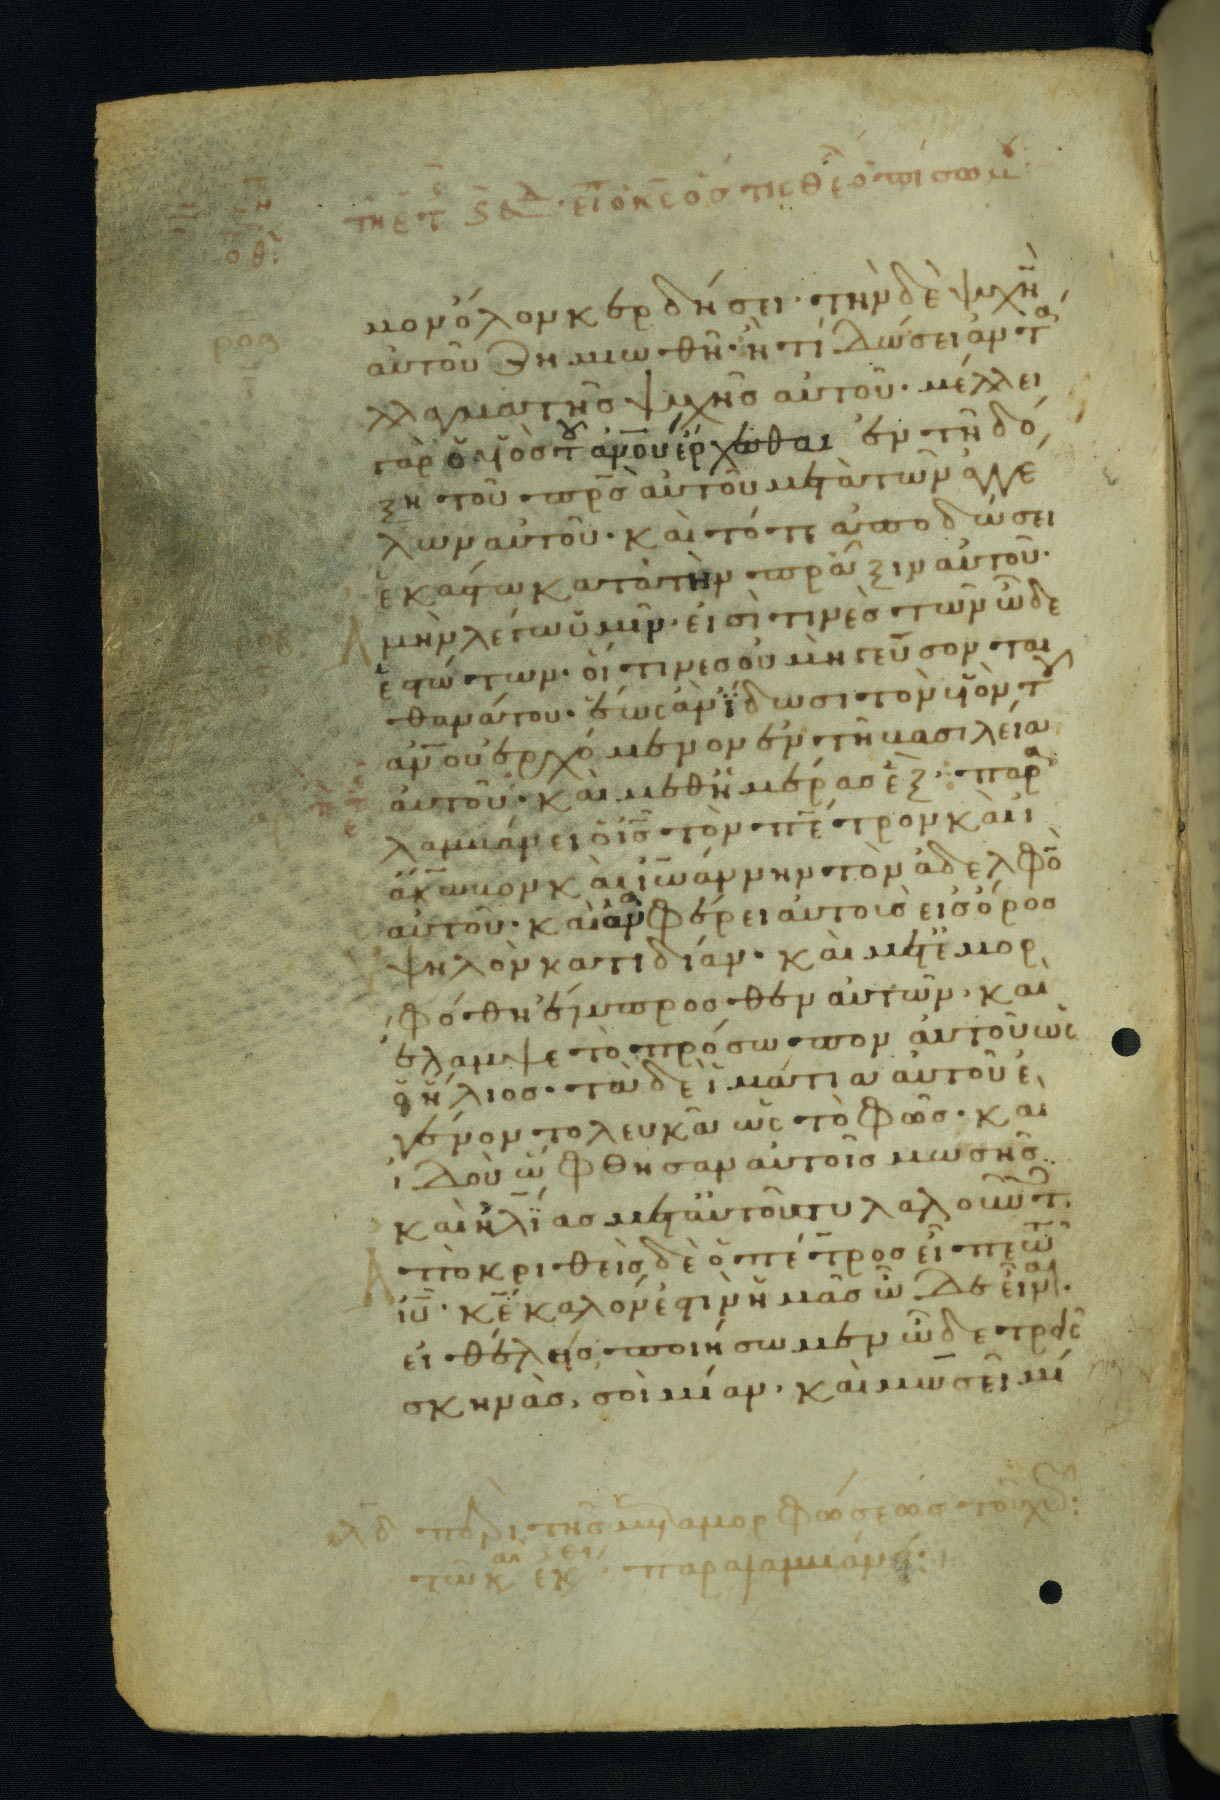 εἶπεν ὁ κ̅ς̅ ὅστις θέλει ὀπίσω μου
ροα
μον ὅλον κερδήσει· τὴν δὲ ψυχὴν
αὐτοῦ ζημιωθῆ· ἢ τί δώσει ἀντα
λλαγμα τῆς ψυχῆς αὐτοῦ· μέλλει
γὰρ ὁ υ̅ς̅ τοῦ α̅ν̅ου̅ ἔρχεσθαι ἐν τῆ δό
ξη τοῦ π̅ρ̅ς̅ αὐτοῦ μετὰ τῶν ἀγγέ
λων αὐτοῦ· καὶ τότε ἀποδώσει
ἑκάστω κατὰ τὴν πρᾶξιν αὐτοῦ·
ροβ
Ἀμὴν λέγω ὑμῖν· εἰσὶ τινὲς τῶν ὧδε
ἑστώτων· οἵτινες οὐ μὴ γεύσονται
θανάτου· ἕως ἂν ἴδωσι τὸν υ̅ν̅ τοῦ
α̅ν̅ου̅ ἐρχόμενον ἐν τῆ βασιλεία
αὐτοῦ· καὶ μεθ ἡμέρας ἓξ· παρα
λαμβάνει ὁ ι̅ς̅ τὸν πέτρον καὶ ι
άκωβον καὶ ἰωάννην τὸν ἀδελφὸν
αὐτοῦ· καὶ ἀναφέρει αὐτοὺς εἰς ὄρος
ὑψηλὸν κατιδίαν· καὶ μετεμορ
φόθη ἔμπροσθεν αὐτῶν· καὶ
ἔλαμψε τὸ πρόσωπον αὐτοῦ ὡς
ὁ ἥλιος· τὰ δὲ ἱμάτια αὐτοῦ ἐ
γένοντο λευκὰ ὡς τὸ φῶς· καὶ
ἰδοὺ ὤφθησαν αὐτοῖς μωσῆς
καὶ ἠλίας μετ αὐτοῦ συλλαλοῦντες
Ἀποκριθεὶς δὲ ὁ πέτρος εἶπεν τῶ
ι̅υ̅· κ̅ε̅ καλόν ἐστιν ἡμᾶς ὧδε εἶναι·
εἰ θέλεις ποιήσωμεν ὧδε τρεῖς
σκηνὰς, σοὶ μίαν, καὶ μωσεῖ μί
περὶ τῆς μεταμορφώσεως τοῦ χ̅υ̅:
τῶ καιρῶ ἐκείνω παραλαμβάνει: